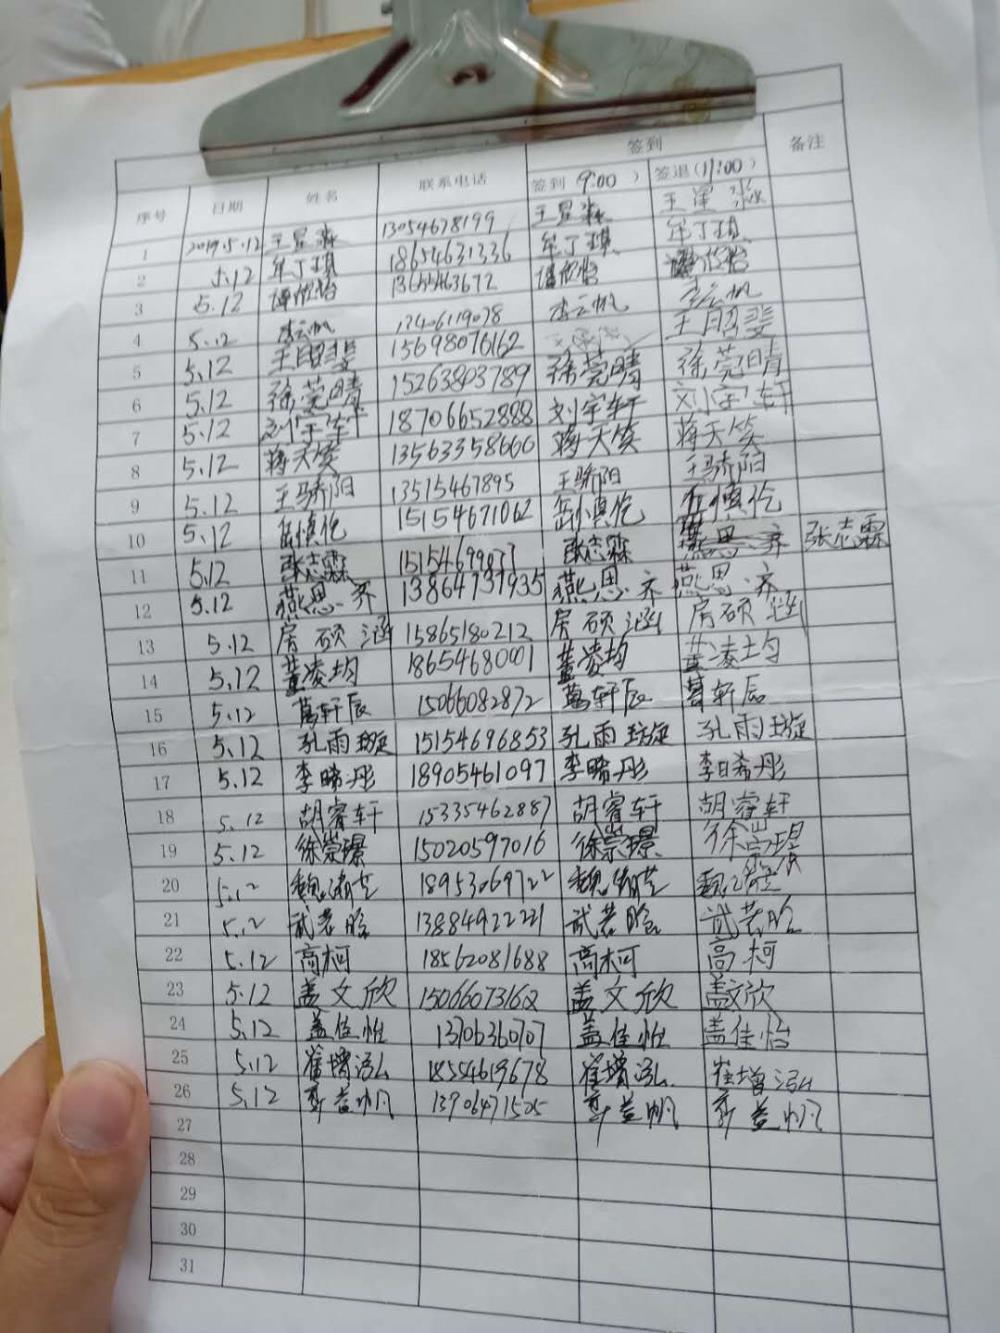 签到 备注
序号 日期 姓名 联系电话 签到(9:00) 签退(11:00)
1 2019.5.12 王星淼 13054678199 王星淼 王星淼
2 5.12 牟丁琪 18654631336 牟丁琪 牟丁琪
3 5.12 欣怡 13655463672 欣怡 欣怡
4 5.12 李云帆 李云帆 李云帆
5 5.12 王昭斐 15698076162 王昭斐
6 5.12 徐莞晴 15263803789 徐莞晴 徐莞晴
7 5.12 刘宇轩 18706652888 刘宇轩 刘宇轩
8 5.12 蒋天笑 13563358666 蒋天笑 蒋天笑
9 5.12 王骄阳 13515467895 王骄阳 王骄阳
10 5.12 岳慎伦 15154671062 岳慎伦 岳慎伦
11 5.12 张志霖 张志霖 燕思齐 张志霖
12 5.12 燕思齐 13864731935 燕思齐 燕思齐
13 5.12 房硕涵 15865180212 房硕涵 房硕涵
14 5.12 董凌均 18654680001 董凌均 董凌均
15 5.12 轩辰 15066082872 轩辰 轩辰
16 5.12 孔雨璇 15154696853 孔雨璇 孔雨璇
17 5.12 李晞彤 18905461097 李晞彤 李晞彤
18 5.12 胡睿轩 15335462887 胡睿轩 胡睿轩
19 5.12 徐崇璟 15020597016 徐崇璟 徐崇璟
20 5.12 魏 18953069722 魏 魏
21 5.12 武若晗 13884922221 武若晗 武若晗
22 5.12 高柯 18562081688 高柯 高柯
23 5.12 盖文欣 15066073162 盖文欣 盖文欣
24 5.12 盖佳怡 13706360707 盖佳怡 盖佳怡
25 5.12 崔增泓 18554619678 崔增泓 崔增泓
26 5.12 益帆 13906471505 益帆 益帆
27
28
29
30
31